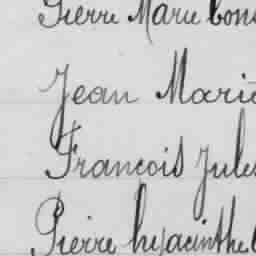 Pierre Marie
Jean Marie
Francois Jules
Pierre hyacinthe